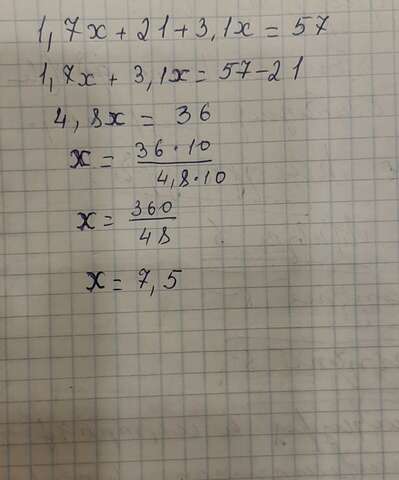 1,7x + 21 + 3,1x = 57
1,7x + 3,1x = 57 - 21
4,8x = 36
x = 36 · 10 / 4,8 · 10
x = 360 / 48
x = 7,5